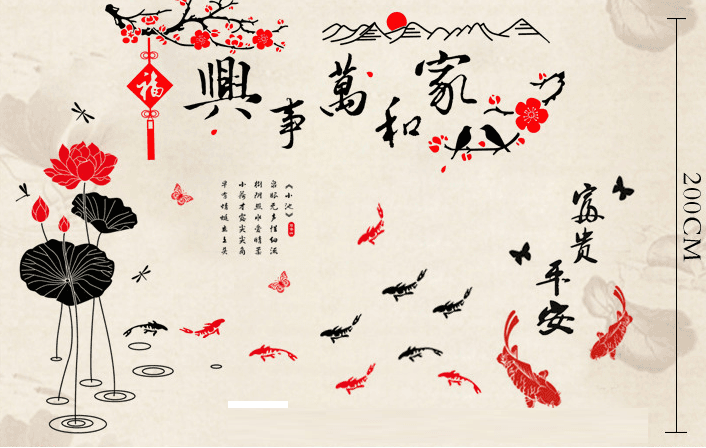 福
家和萬事興
《小池》
泉眼无声惜细流
树阴照水爱晴柔
小荷才露尖尖角
富贵
平安
200CM